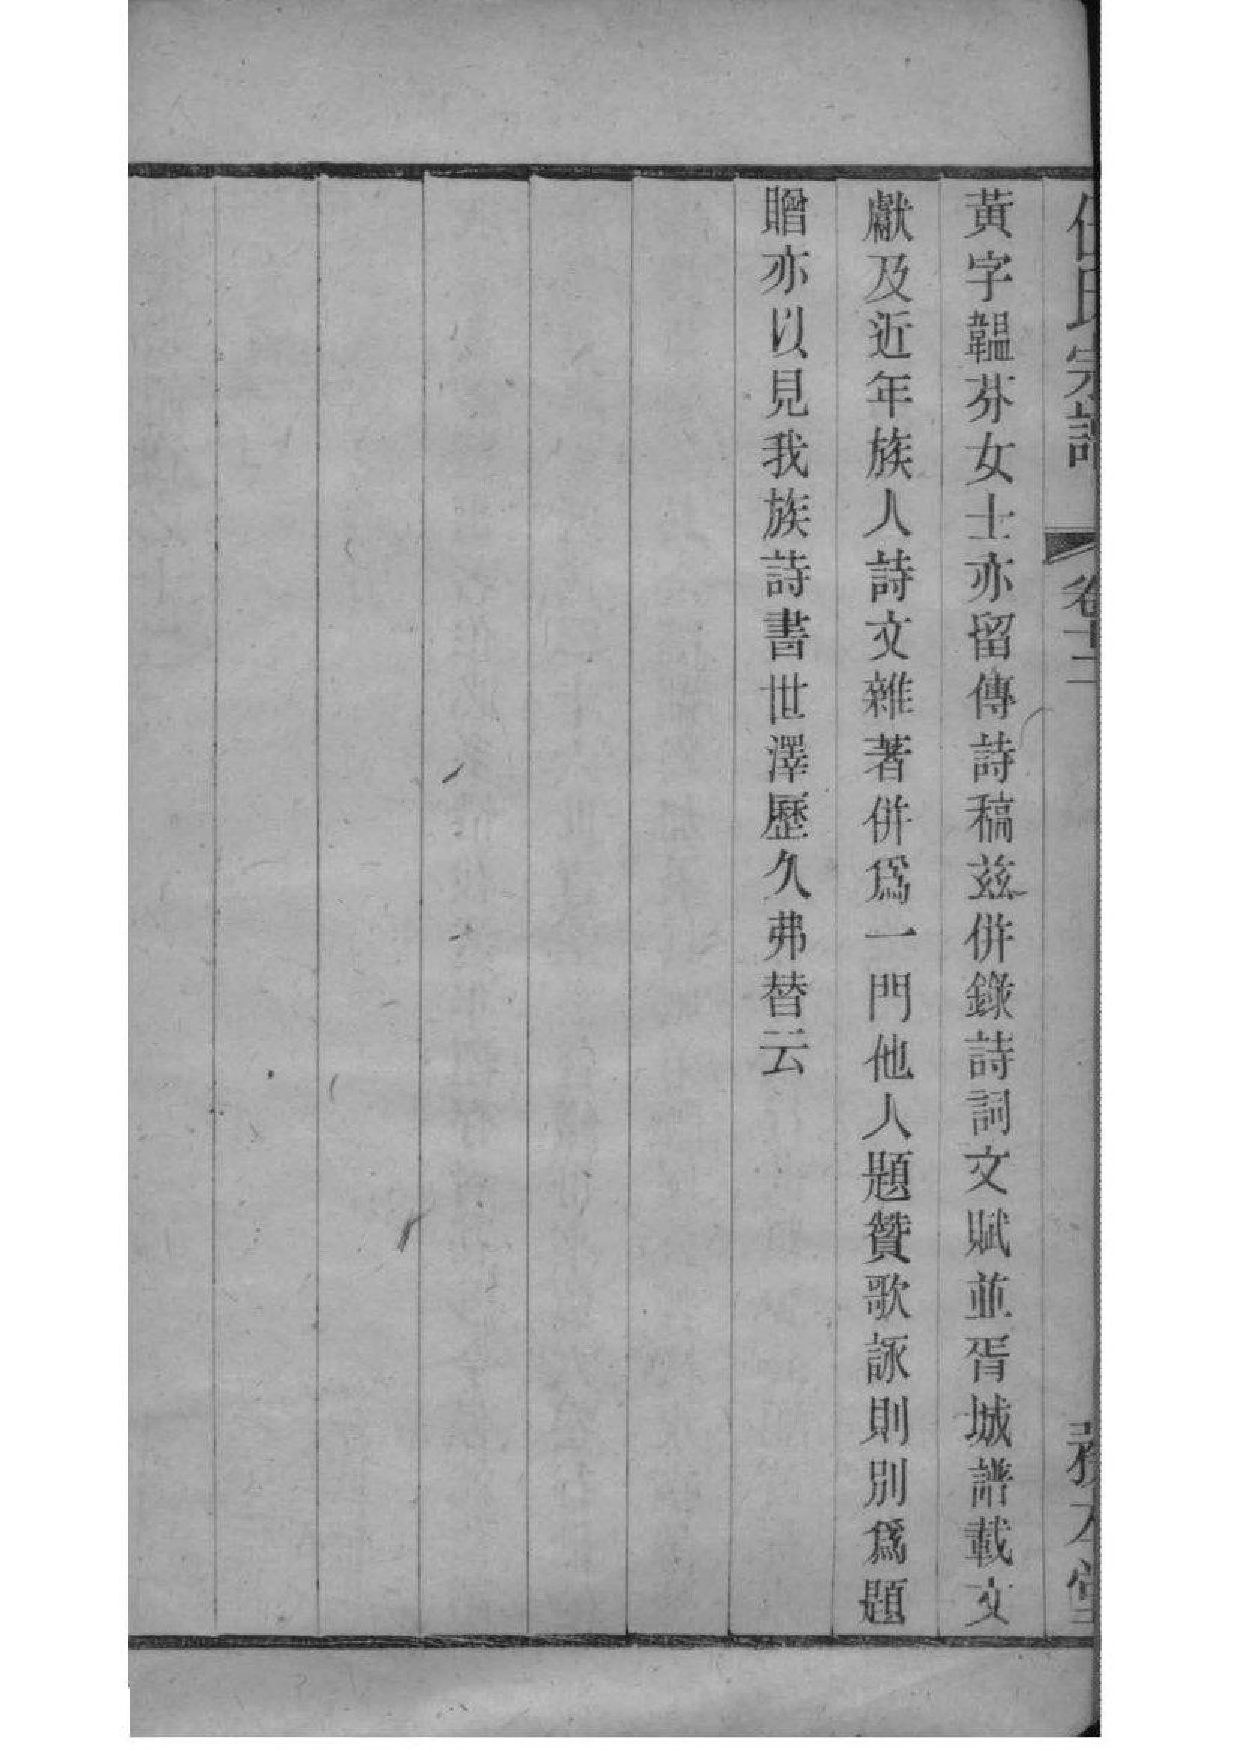 任氏宗譜
卷十二
務本堂
黃字韞芬女士亦留傳詩稿茲併錄詩詞文賦並胥城譜載文
獻及近年族人詩文雜著併爲一門他人題贊歌詠則別爲題
贈亦以見我族詩書世澤歷久弗替云